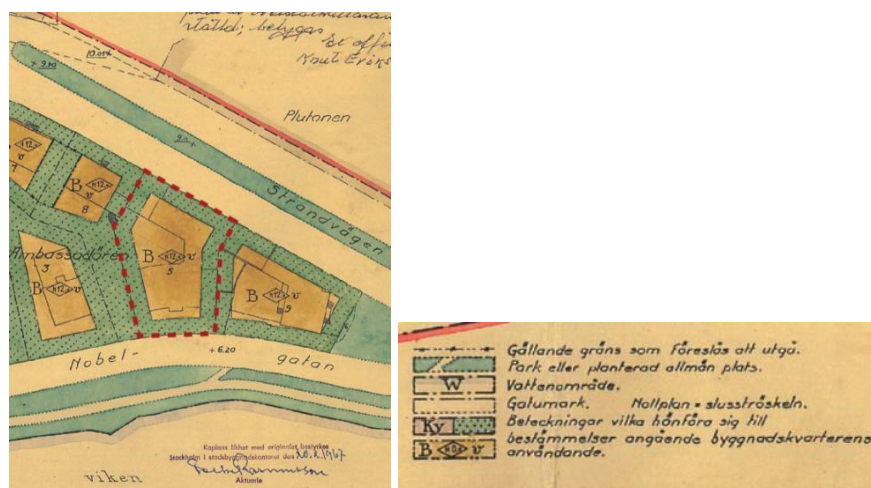 ställd; betygas
Ex offi
Knut Eriks
10.05x
+ 9.80
Plutonen
Strandvägen
B H12.0 v
8
v
7
Ambassadören
3
B H12.0 v
B H12.0 v
5
B H12.0 v
9
Nobel-
gatan
+6.20
Kopians likhet med originalet bestyrkes
Stockholm i stadsbyggnadskontoret den 20.2.1967
Aktuarie
viken
Gällande gräns som föreslås att utgå.
Park eller planterad allmän plats.
W
Vattenområde.
Gatumark. Nollplan = slusströskeln.
Ky
Beteckningar vilka hänföra sig till
B v
bestämmelser angående byggnadskvarterens
användande.